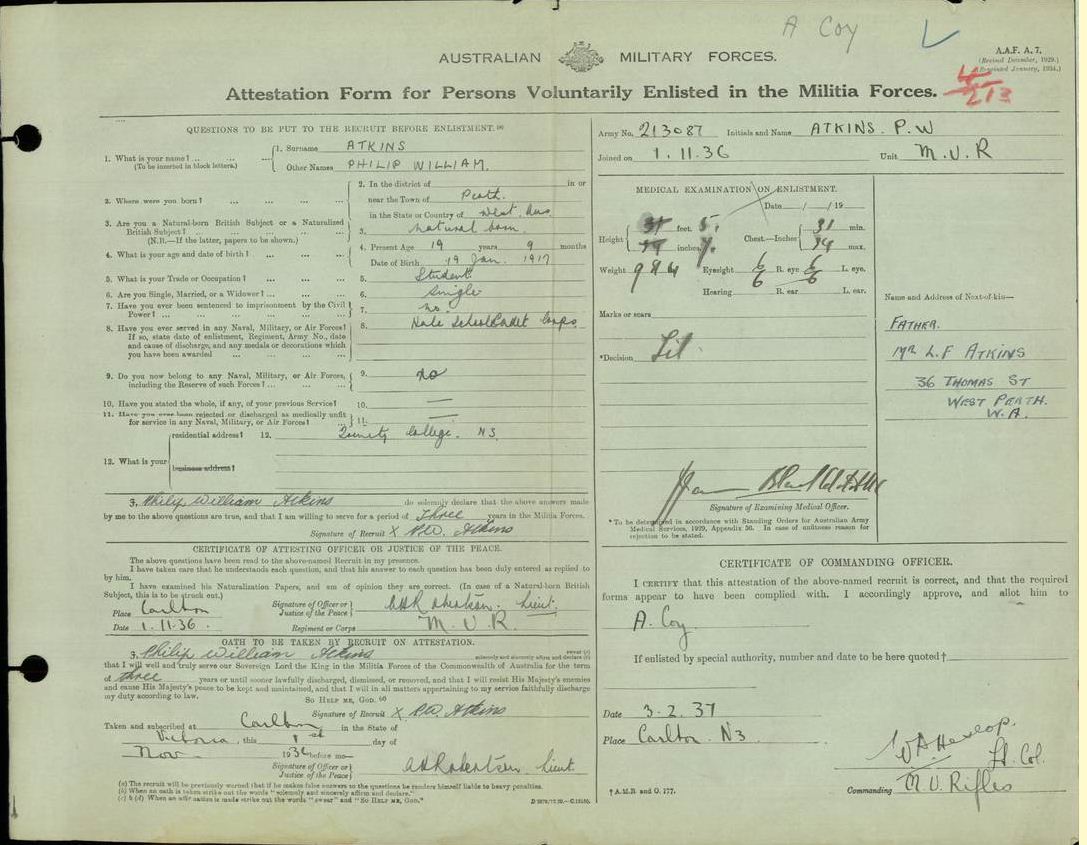 A Coy
AUSTRALIAN MILITARY FORCES.
A.A.F. A. 7.
(Revised December, 1929.)
(Reprinted January, 1934.)
Attestation Form for Persons Voluntarily Enlisted in the Militia Forces.
213
QUESTIONS TO BE PUT TO THE RECRUIT BEFORE ENLISTMENT.(a)
1. What is your name? .. ... ...
(To be inserted in block letters.)
1. Surname ATKINS
Other Names PHILIP WILLIAM.
2. Where were you born? ... ... ...
2. In the district of in or
near the Town of Perth.
in the State or Country of West. Aus
3. Are you a Natural-born British Subject or a Naturalized
British Subject? ... ... ... ...
(N.B.—If the latter, papers to be shown.)
3. Natural born.
4. What is your age and date of birth? ... ...
4. Present Age 19 years 9 months
Date of Birth 19 Jan. 1917
5. What is your Trade or Occupation? ... ... ...
5. Student
6. Are you Single, Married, or a Widower? ... ...
6. Single
7. Have you ever been sentenced to imprisonment by the Civil
Power? ... ... ... ...
7. no.
8. Have you ever served in any Naval, Military, or Air Forces?
If so, state date of enlistment, Regiment, Army No., date
and cause of discharge, and any medals or decorations which
you have been awarded ... ... ...
8. Hale School Cadet Corps
9. Do you now belong to any Naval, Military, or Air Forces,
including the Reserve of such Forces? ... ...
9. no
10. Have you stated the whole, if any, of your previous Service?
10. —
11. Have you ever been rejected or discharged as medically unfit
for service in any Naval, Military, or Air Forces?
11. —
12. What is your
residential address? 12. Trinity College. N3.
business address?
I, Philip William Atkins do solemnly declare that the above answers made
by me to the above questions are true, and that I am willing to serve for a period of Three years in the Militia Forces.
Signature of Recruit X P.W. Atkins
CERTIFICATE OF ATTESTING OFFICER OR JUSTICE OF THE PEACE.
The above questions have been read to the above-named Recruit in my presence.
I have taken care that he understands each question, and that his answer to each question has been duly entered as replied to
by him.
I have examined his Naturalization Papers, and am of opinion they are correct. (In case of a Natural-born British
Subject, this is to be struck out.)
Place Carlton
Signature of Officer or
Justice of the Peace A H Robertson. Lieut.
Date 1.11.36.
Regiment or Corps M.U.R.
OATH TO BE TAKEN BY RECRUIT ON ATTESTATION.
I, Philip William Atkins swear (c)
solemnly and sincerely affirm and declare (d)
that I will well and truly serve our Sovereign Lord the King in the Militia Forces of the Commonwealth of Australia for the term
of three years or until sooner lawfully discharged, dismissed, or removed, and that I will resist His Majesty's enemies
and cause His Majesty's peace to be kept and maintained, and that I will in all matters appertaining to my service faithfully discharge
my duty according to law.
SO HELP ME, GOD. (b)
Signature of Recruit X P.W. Atkins
Taken and subscribed at Carlton in the State of
Victoria, this 1st day of
Nov 1936 before me—
Signature of Officer or
Justice of the Peace A H Robertson Lieut
(a) The recruit will be previously warned that if he makes false answers to the questions he renders himself liable to heavy penalties.
(b) When an oath is taken strike out the words "solemnly and sincerely affirm and declare."
(c) & (d) When an affirmation is made strike out the words "swear" and "So HELP ME, GOD."
Army No. 213087 Initials and Name ATKINS. P.W
Joined on 1.11.36 Unit M.U.R
MEDICAL EXAMINATION ON ENLISTMENT.
Date / /19
Height feet. 5.
inches
Chest—Inches 31 min.
34 max.
Weight 9 st 4 Eyesight 6/6 R. eye 6/6 L. eye.
Hearing R. ear. L. ear.
Marks or scars
*Decision Fit.
Signature of Examining Medical Officer.
* To be determined in accordance with Standing Orders for Australian Army
Medical Services, 1929, Appendix 36. In case of unfitness reason for
rejection to be stated.
Name and Address of Next-of-kin—
FATHER.
MR L.F ATKINS
36 THOMAS ST
WEST PERTH.
W.A.
CERTIFICATE OF COMMANDING OFFICER.
I CERTIFY that this attestation of the above-named recruit is correct, and that the required
forms appear to have been complied with. I accordingly approve, and allot him to
A. Coy
If enlisted by special authority, number and date to be here quoted†
Date 3.2.37
Place Carlton. N3
Lt. Col.
Commanding M.U. Rifles
† A.M.R. and O. 177.